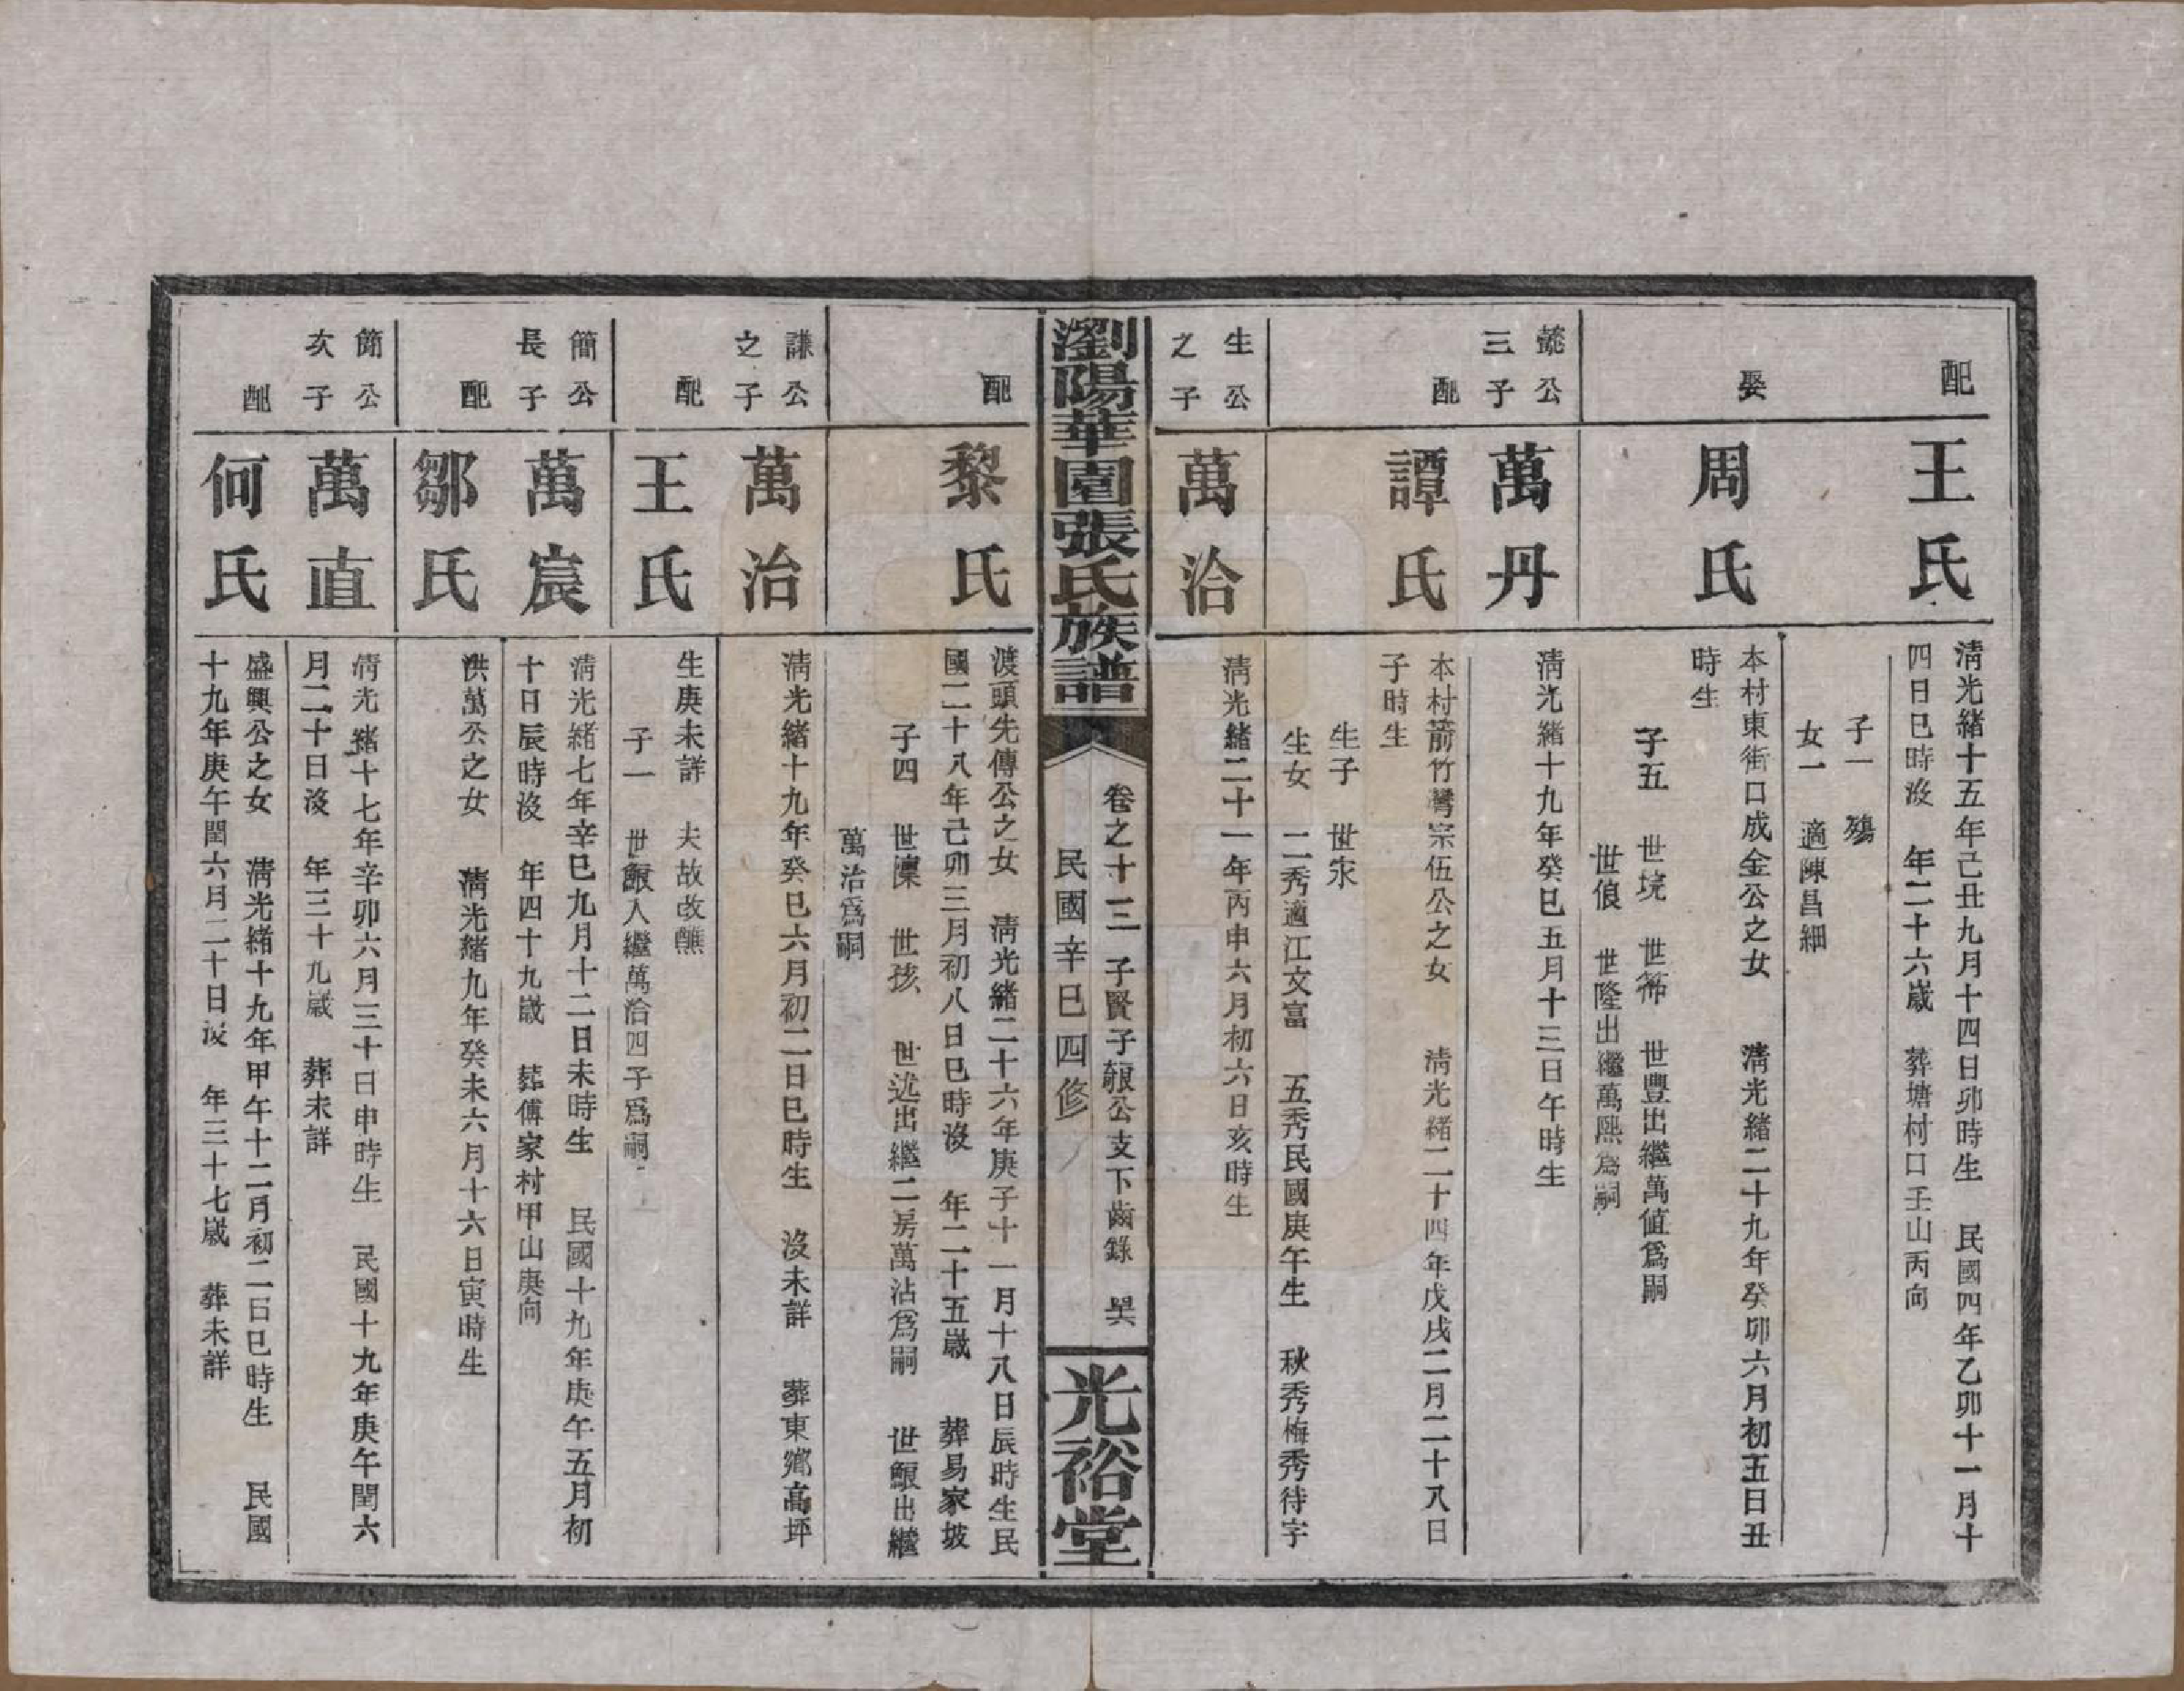 配
王氏
清光緒十五年己丑九月十四日卯時生 民國四年乙卯十一月十
四日巳時沒 年二十六歲 葬塘村口壬山丙向
子一 殤
女一 適陳昌細
娶
周氏
本村東街口成金公之女 清光緒二十九年癸卯六月初五日丑
時生
子五 世垸 世豐出繼萬值爲嗣
世俍 世隆出繼萬熙爲嗣
公
三子
萬丹
清光緒十九年癸巳五月十三日午時生
配
譚氏
本村箭竹灣宗伍公之女 清光緒二十四年戊戌二月二十八日
子時生
生子 世永
生女 二秀適江文富 五秀民國庚午生 秋秀梅秀待字
生公
之子
萬洽
清光緒二十一年丙申六月初六日亥時生
瀏陽華園張氏族譜
卷之十三 子賢子報公支下齒錄
民國辛巳四修
光裕堂
配
黎氏
渡頭先傳公之女 清光緒二十六年庚子十一月十八日辰時生民
國二十八年己卯三月初八日巳時沒 年二十五歲 葬易家坡
子四 世凜 世孩 世述出繼二房萬沾爲嗣 世艱出繼
萬治爲嗣
謙公
之子
萬治
清光緒十九年癸巳六月初二日巳時生 沒未詳 葬東鄉高坪
配
王氏
生庚未詳 夫故改醮
子一 世艱入繼萬洽四子爲嗣
簡公
長子
萬宸
清光緒七年辛巳九月十二日未時生 民國十九年庚午五月初
十日辰時沒 年四十九歲 葬傅家村甲山庚向
配
鄒氏
洪萬公之女 清光緒九年癸未六月十六日寅時生
簡公
次子
萬直
清光緒十七年辛卯六月三十日申時生 民國十九年庚午閏六
月二十日沒 年三十九歲 葬未詳
配
何氏
盛興公之女 清光緒十九年甲午十二月初二日巳時生 民國
十九年庚午閏六月二十日沒 年三十七歲 葬未詳